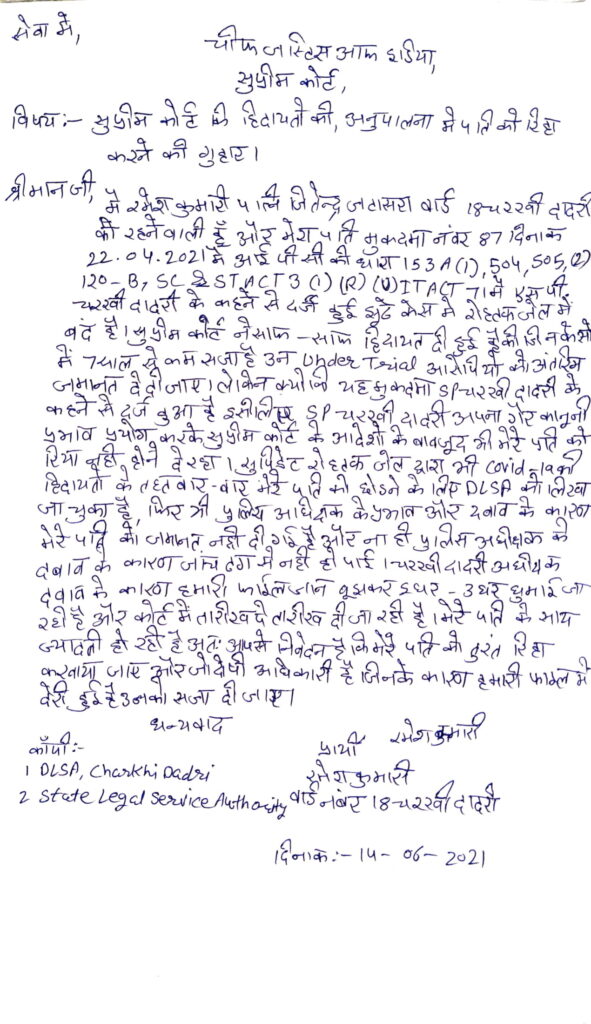 सेवा में,
चीफ जस्टिस आफ इंडिया,
सुप्रीम कोर्ट,
विषय:- सुप्रीम कोर्ट कि हिदायतो की, अनुपालना मे पति को रिहा
करने की गुहार।
श्रीमान जी,
मै रमेश कुमारी पत्नि जितेन्द्र जटासरा वार्ड 18 चरखी दादरी
की रहने वाली हूँ और मेरा पति मुकदमा नंबर 87 दिनाक
22.04.2021 मे आई पी सी की धारा 153A(1), 504, 505,(2)
120-B, SC & ST ACT 3 (1) (R) (U) IT ACT 71 मे एस पी
चरखी दादरी के कहने से दर्ज हुई झूठे केस मे रोहतक जेल में
बंद है। सुप्रीम कोर्ट ने साफ-साफ हिदायत दी हुई है की जिन केसो
में 7 साल से कम सजा है उन Under Trial आरोपियो को अंतरिम
जमानत दे दी जाए। लेकिन क्योकि यह मुकदमा SP चरखी दादरी के
कहने से दर्ज हुआ है इसीलिए SP चरखी दादरी अपना गैर कानूनी
प्रभाव प्रयोग करके सुप्रीम कोर्ट के आदेशो के बावजूद भी मेरे पति को
रिया नही होने दे रहा। सुप्रिडेट रोहतक जेल द्वारा भी Covid 19 की
हिदायतो के तहत बार-बार मेरे पति को छोडने के लिए DLSA को लिखा
जा चुका है, फिर भी पुलिस अधिक्षक के प्रभाव और दवाव के कारण
मेरे पति को जमानत नही दी गई है और ना ही पुलिस अधीक्षक के
दवाव के कारण जांच ढंग से नही हो पाई। चरखी दादरी अधीक्षक
दवाव के कारण हमारी फाईल जान बूझकर इधर-उधर घुमाई जा
रही है और कोर्ट में तारीख पे तारीख दी जा रही है। मेरे पति के साथ
ज्यादती हो रही है अत: आपसे निवेदन है कि मेरे पति को तुरंत रिहा
करवाया जाए और जो दोषी अधिकारी है जिनके कारण हमारी फाइल मे
देरी हुई है उनको सजा दी जाए।
धन्यवाद
कॉपी:-
प्रार्थी रमेश कुमारी
1 DLSA, Charkhi Dadri
रमेश कुमारी
2 State Legal Service Authority
वार्ड नंबर 18 चरखी दादरी
दिनाक:- 14-06-2021